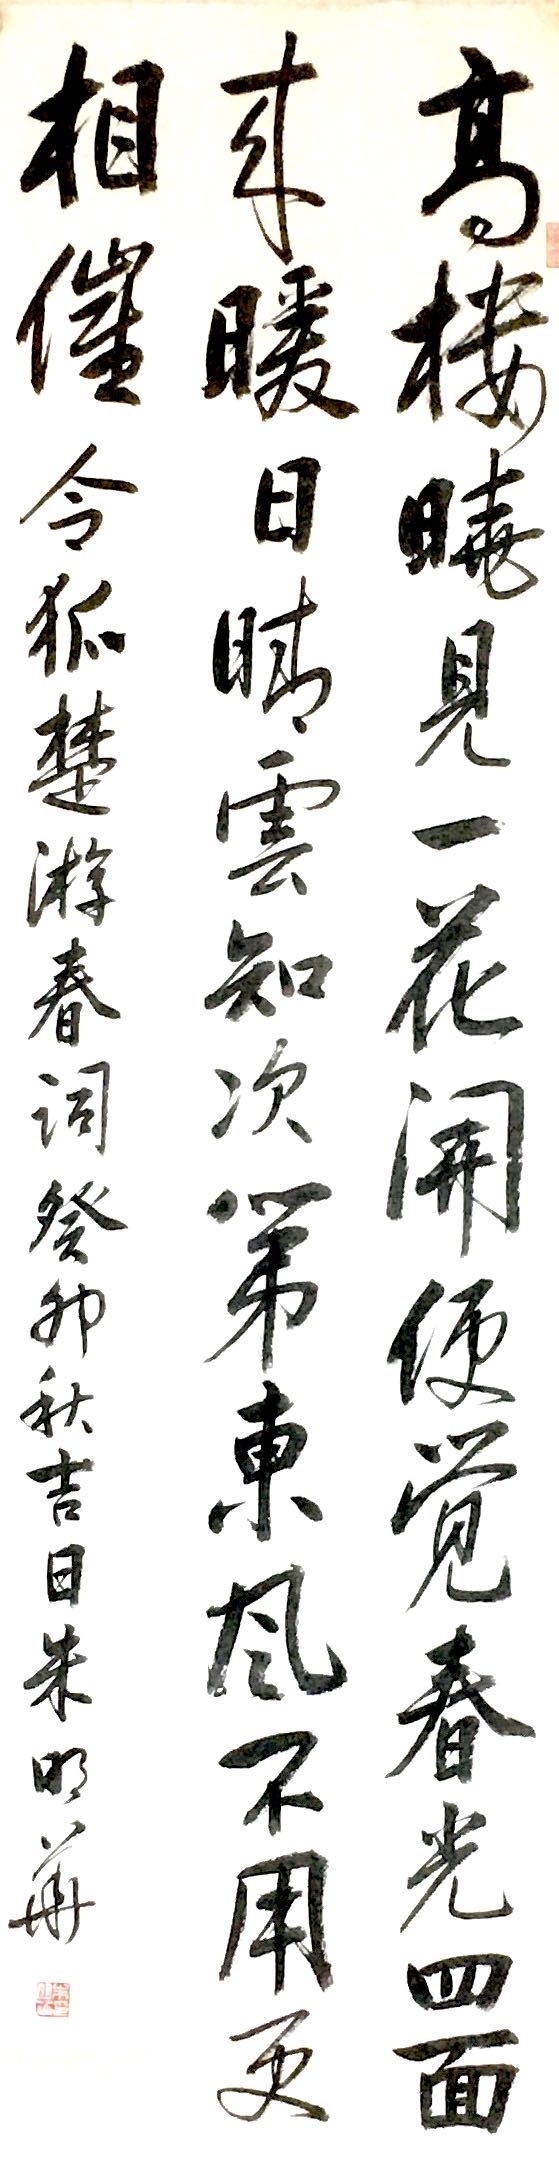 高楼曉見一花開便觉春光四面
来暖日晴雲知次第東風不用更
相催 令狐楚游春词癸卯秋吉日朱明華